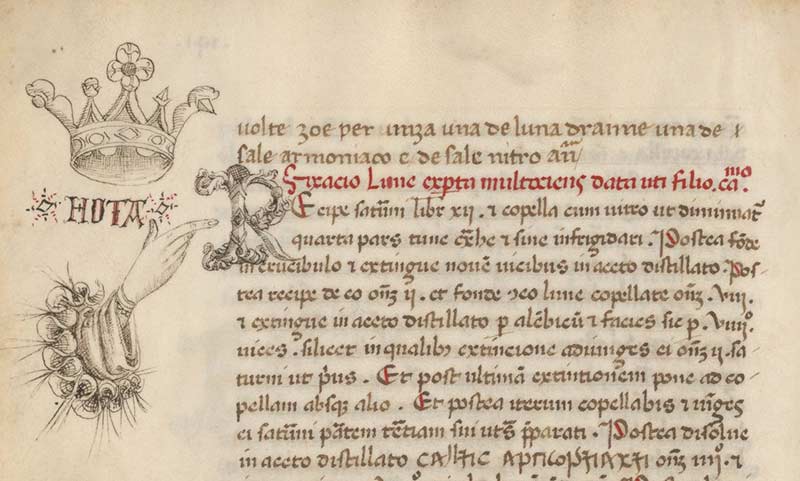 NOTA
uolte zoe per unza una de luna dramme una de
sale armoniaco e de sale nitro añ
Fixacio Lune expta multociens data uti filio cmo
Recipe saturni libr XII. et copella cum uitro ut diminuat
quarta pars tunc ext̃he et sine infrigidari. Postea fõde
in crucibulo et extingue nouẽ uicibus in aceto distillato. Pos-
tea recipe de eo onz̃ ii. et fonde lune copellate onz̃. VIII.
et extingue in aceto distillato p alẽbicũ et facies sic p. VIIIo.
uices. silicet in qualib; extincione adiunges ei onz̃ ii. sa-
turni ut pus. Et post ultimã extintionem pone ad co-
pellam absq; alio. Et postea iterum copellabis et
ei saturni partem sui p̃parati. Postea disolue
in aceto distillato onz̃ IIIIo. et